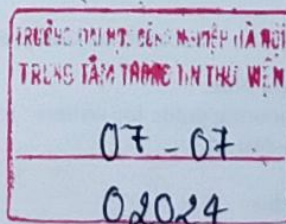 TRƯỜNG ĐẠI HỌC CÔNG NGHIỆP HÀ NỘI
TRUNG TÂM THÔNG TIN THƯ VIỆN
07-07
02024